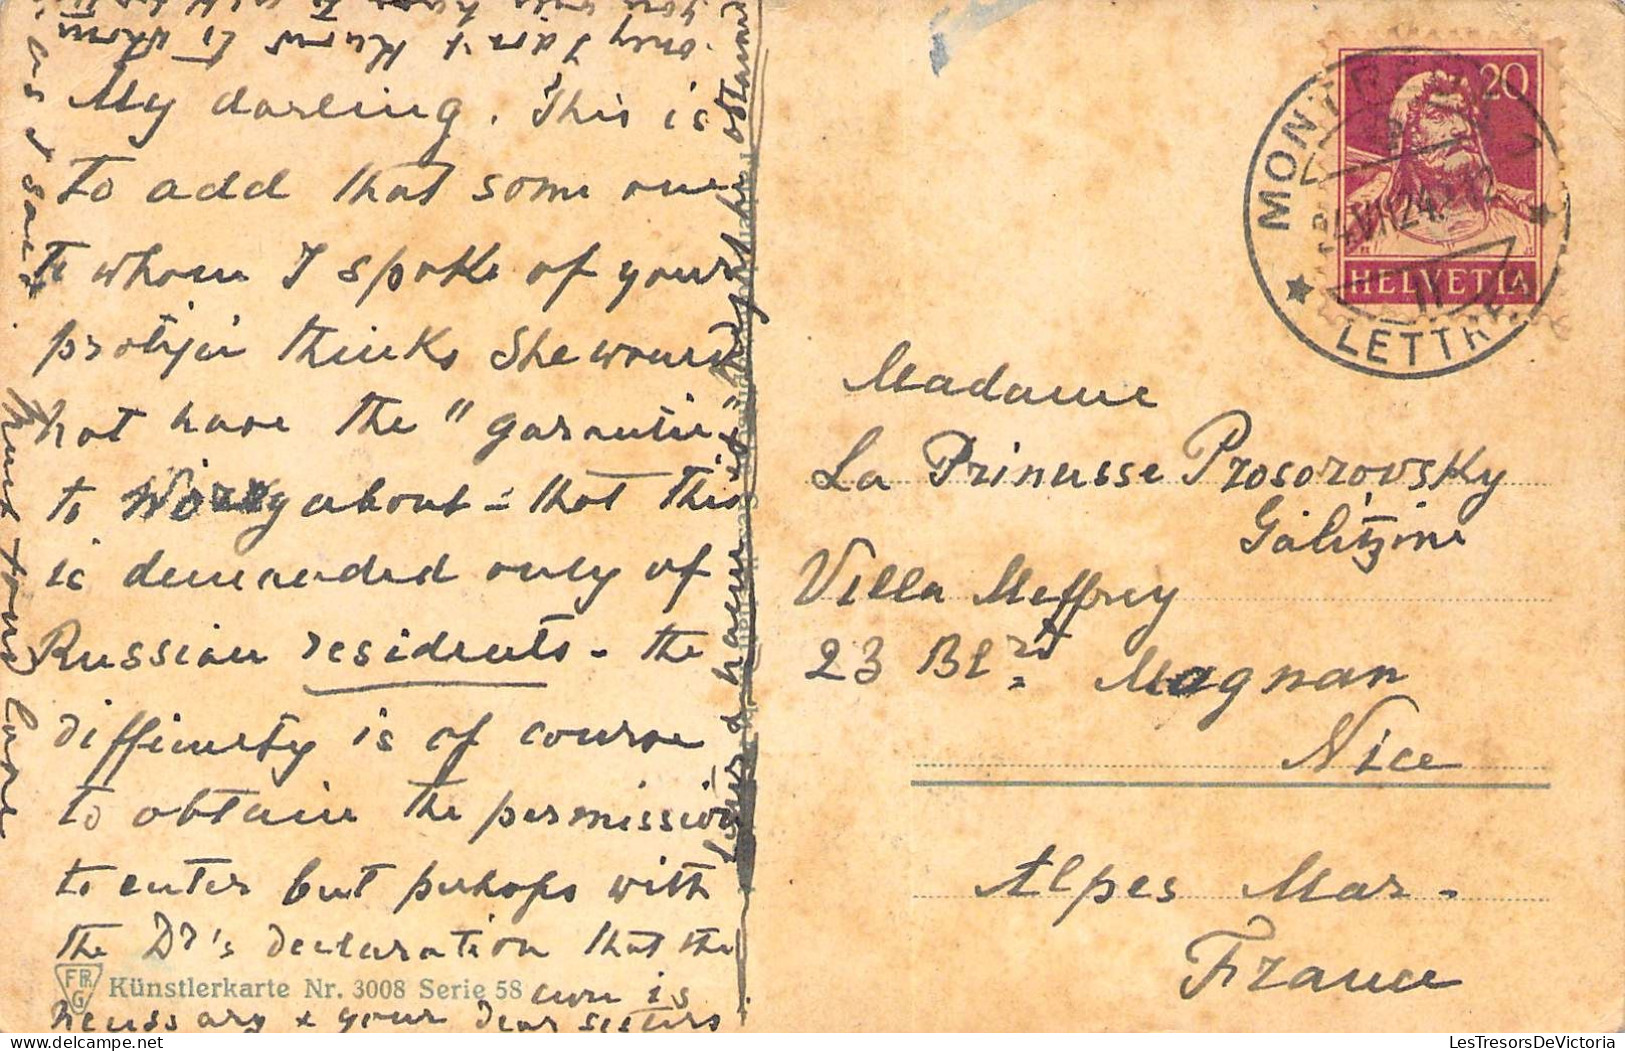 My darling. This is
to add that some one
to whom I spoke of your
protijée thinks she would
not have the "garantie"
to worry about - that this
is demanded only of
Russian residents - the
difficulty is of course
to obtain the permission
to enter but perhaps with
the Dr's declaration that the
cure is
necessary & your dear sisters
only I don't know to whom
as I said.
much fond love
FRG
Künstlerkarte Nr. 3008 Serie 58
20
HELVETIA
MONTREUX 1
24.VII.24.-12
LETTRES
Madame
La Princesse Prosorovsky
Galitzine
Villa Meffrey
23 Bld Magnan
Nice
Alpes Mar-
France
LesTresorsDeVictoria